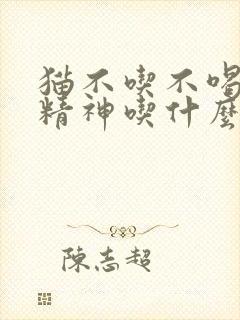 猫不喫不喝
精神喫什麼
陳志超